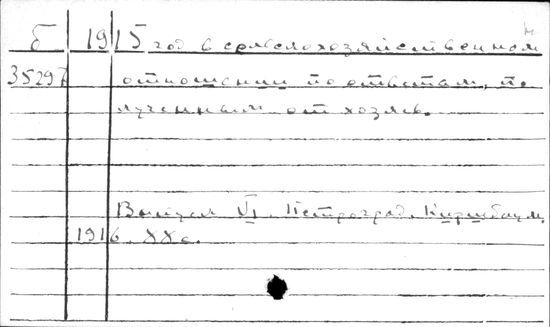 б 1915 год в сельскохозяйственном
35297 отношении по ответам, по
лученным от хозяев.
Выпуск VI. Петроград. Киршбаум.
1916. XX с.